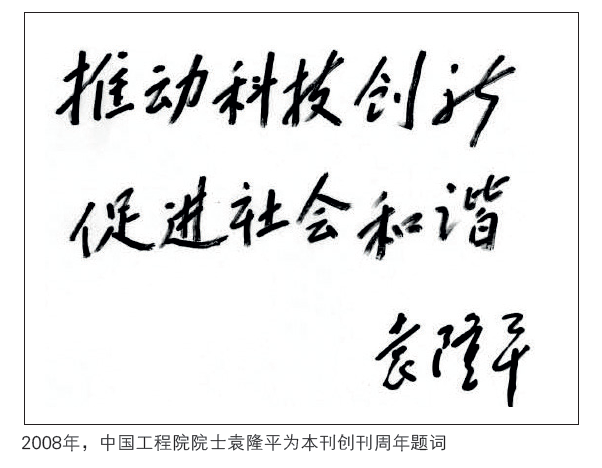 推动科技创新
促进社会和谐
袁隆平
2008年，中国工程院院士袁隆平为本刊创刊周年题词